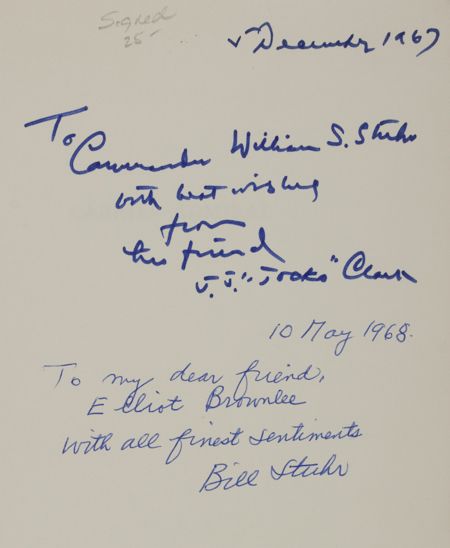 Signed
25-
5 December 1967
To
Commander William S. Stuhr
with best wishes
from
his friend
J.J. "Jocko" Clark
10 May 1968.
To my dear friend,
Elliot Brownlee
with all finest sentiments
Bill Stuhr